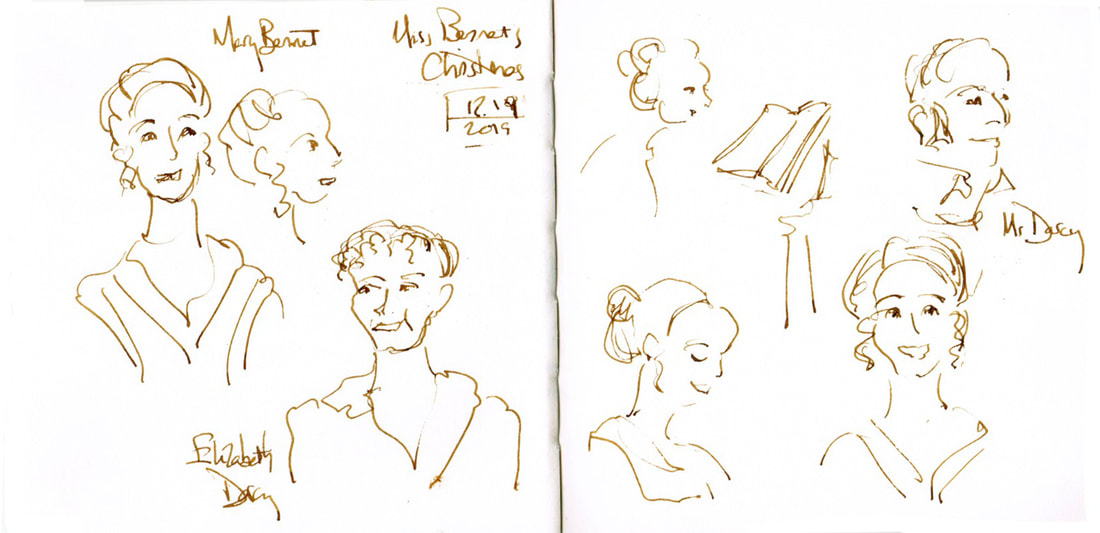 Mary Bennet
Miss Bennet's
Christmas
12.19
2019
Elizabeth
Darcy
Mr Darcy